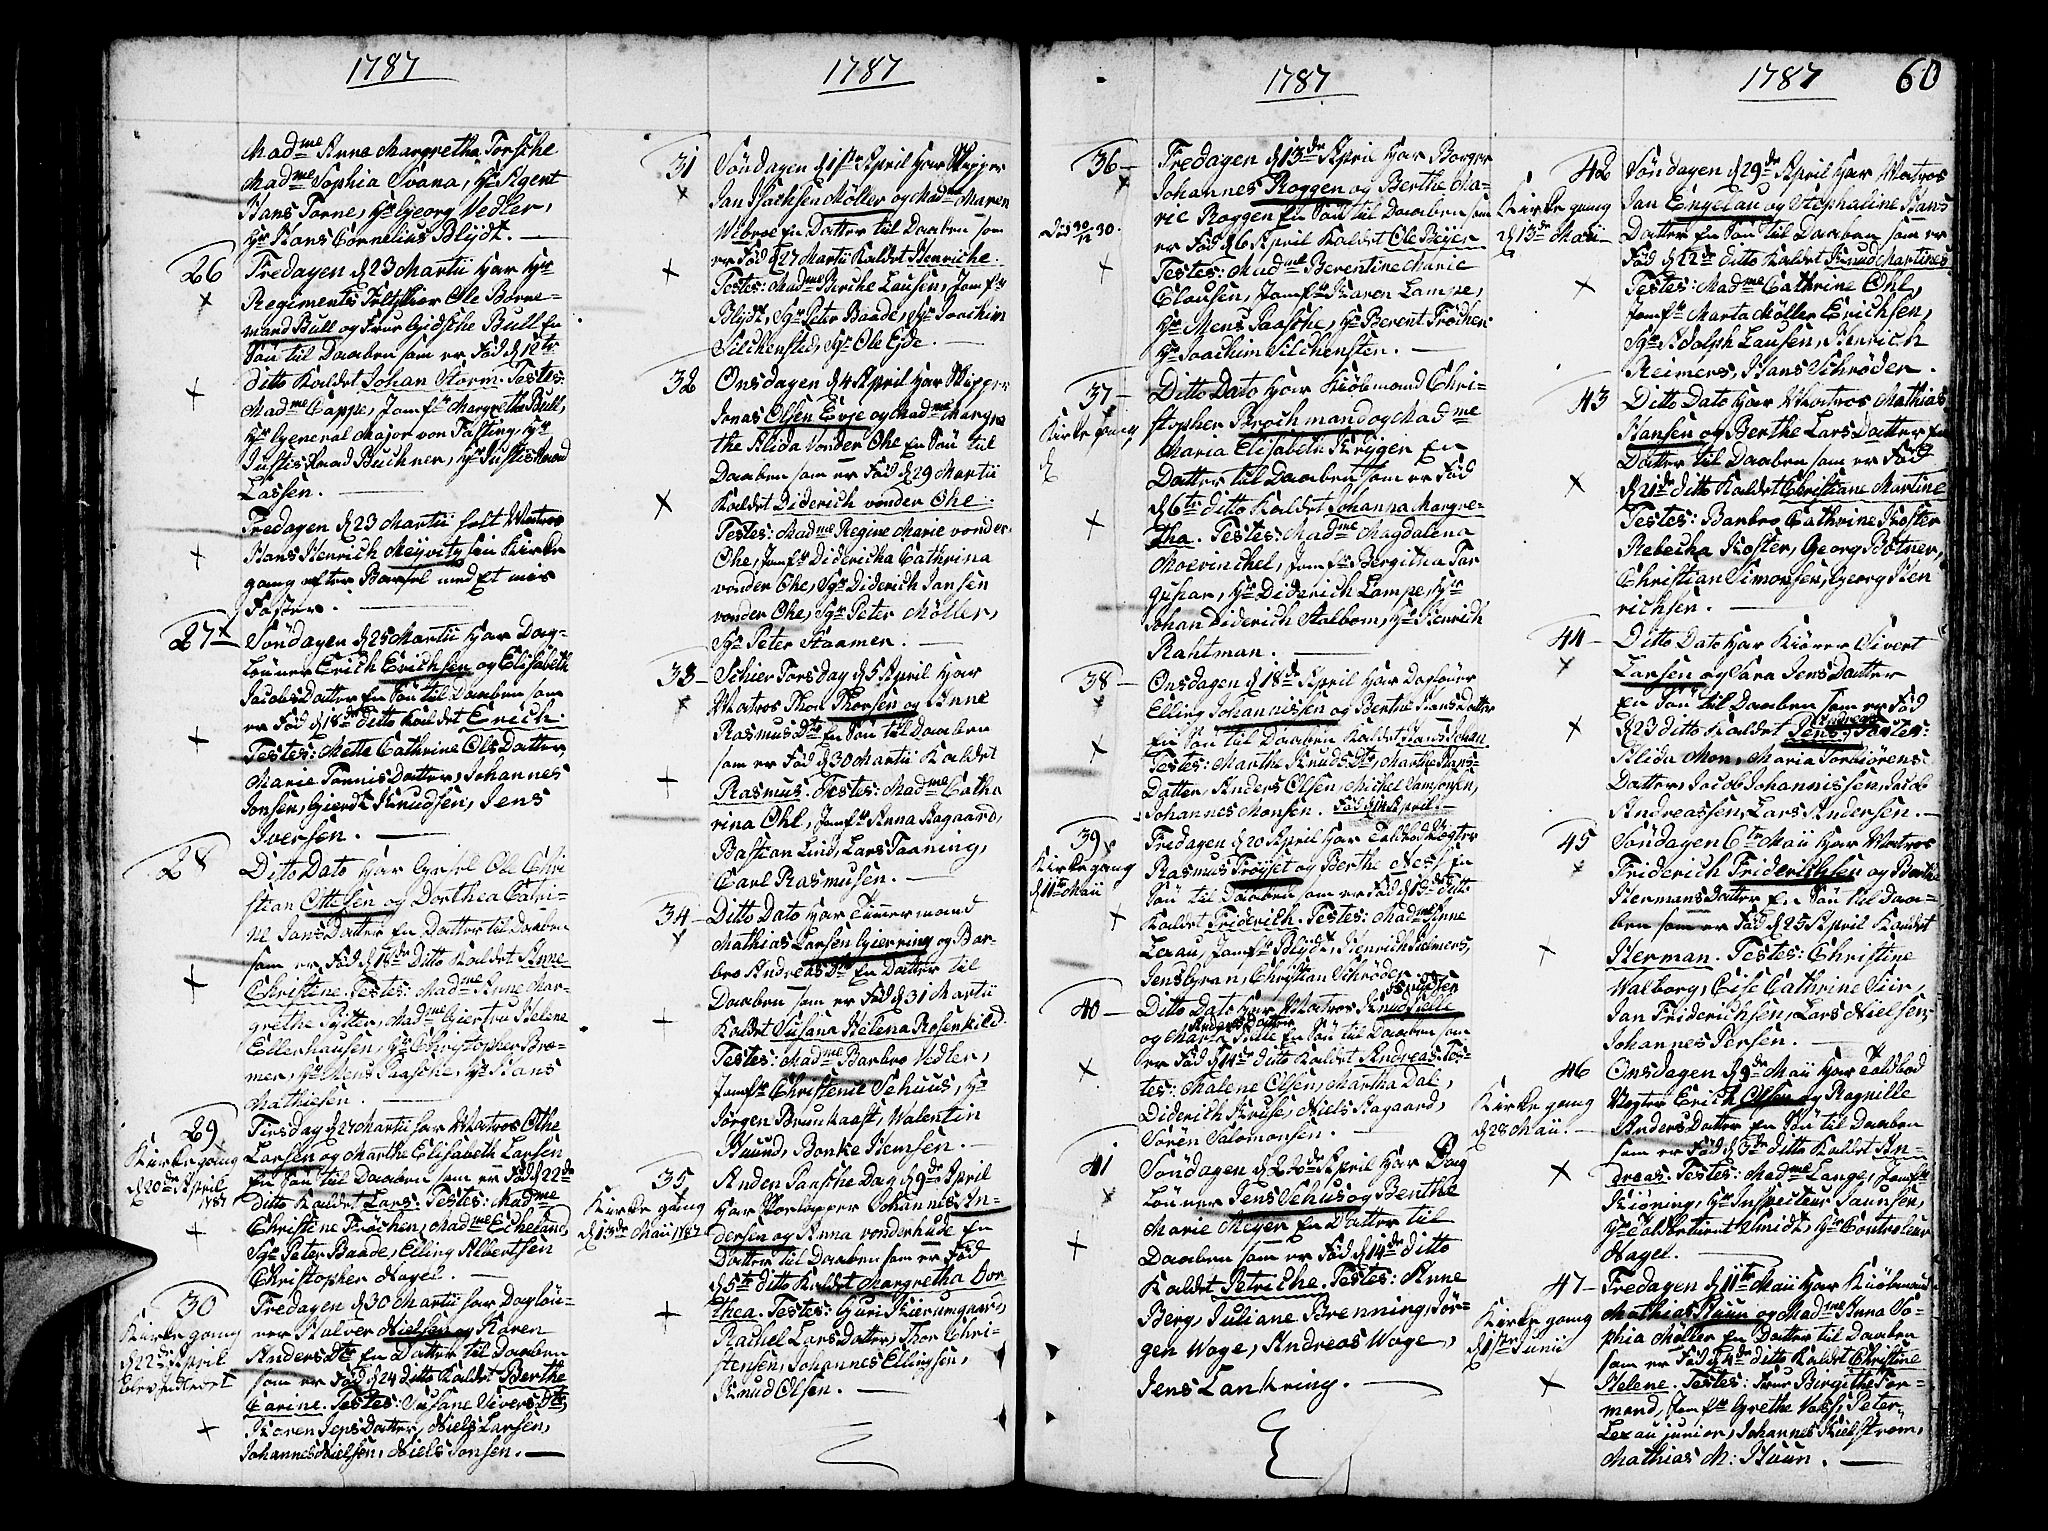 1787
Mad.me Anna Margretha Forsche
Mad.me Sophia Svana, Hr Agent
Hans Forne, Hr Georg Vedler,
Hr Hans Cornelius Blijdt.
26
Fredagen d 23 Martii har Hr
Regiments Ole Borne-
mand Bull og Frue Giedsche Bull En
Søn til Daaben som er Fød d 12te
ditto Kaldet Johan Storm. Testes:
Mad.me Cappe, Jomfr Margrethe Bull,
Hr General Major von Fasting, Hr
Justisraad Buchner, Hr Justisraad
Lassen.
Fredagen d 23 Martii holt Matros
Hans Henrich Meyvity sin Kirke
gang efter Barsel med Et mis
Foster.
27
Søndagen d 25 Martii har Dag-
Lønner Erich Erichsen og Elisabeth
Jacobs Datter En Søn til Daaben som
er Fød d 18de ditto Kaldet Erich.
Testes: Mette Cathrine Ols Datter
Marie Tønnis Datter, Johannes
Jonsen, Gierdt Knudsen, Jens
Iversen.
28
Ditto Dato har Gysel Ole Chri-
stian Ottesen og Dorthea Catri-
ne Jans Datter En Datter til Daaben
som er Fød d 18de Ditto Kaldet Anne
Christine. Testes: Mad.me Anne Mar-
grethe Pytter, Mad.me Giertru Helene
Ellerhausen, Hr Christopher Brø-
mer, Hr Mens Paasche, Hr Hans
Mathiesen.
29
Kirke gang
d 20de April
1787
Tirsdag d 27 Martii har Matros Othe
Larsen og Marthe Elisabeth Larsen
En Søn til Daaben som er Fød d 22de
ditto Kaldet Lars. Testes: Mad.me
Christine Frøchen, Mad.me Echeland,
Sgr Peter Baade, Elling Albertsen
Christopher Nagel.
30
Kirke gang
d 22de April
Fredagen d 30 Martii har Dagløn-
ner Halver Nielsen og Karen
Anders Dtr En Datter til Daaben
som er Fød d 24 ditto Kaldet Berthe
Carine. Testes: Susane Sivers Dtr,
Karen Jeps Datter, Niels Larsen,
Johannes Nielsen, Niels Jonsen.
1787
31
Søndagen d 1ste April har Skipper
Jan Isachsen Møller og Mad.me Maren
Wibroe En Datter til Daaben som
er Fød d 27 Martii Kaldet Henriche.
Testes: Mad.me Birche Lausen, Jomfr
Blijdt, Sgr Peter Baade, Sgr Joachim
Silchensted, Sgr Ole Ejde.
32
Onsdagen d 4 April har Skipper
Jonas Olsen Evje og Mad.me Margre
the Alida Vonder Ohe En Søn til
Daaben som er Fød d 29 Martii
Kaldet Diderich vonder Ohe.
Testes: Mad.me Regine Marie vonder
Ohe, Jomfr Didericha Cathrina
vonder Ohe, Sgr Diderich Jansen
vonder Ohe, Sgr Peter Møller,
Sgr Peter Staamer.
33
Schier Torsdag d 5 April har
Matros Thor Thorsen og Anne
Rasmus Dtr En Søn til Daaben
som er Fød d 30 Martii Kaldet
Rasmus. Testes: Mad.me Catha
rina Ohl, Jomfr Anna Aagaard,
Bastian Lind, Lars Taaning,
Carl Rasmusen.
34
Ditto Dato har Timmermand
Mathias Larsen Gierring og Bar-
bro Andreas Dtr En Datter til
Daaben som er Fød d 31 Martii
Kaldet Susana Helena Rosenkild.
Testes: Mad.me Barbro Vedler,
Jomfr Christence Schuus, Hr
Jørgen Brunkaast, Walentin
Huund, Bonke Hemsen.
35
Kirke gang
d 13de Maii 1787
Anden Paasche Dag d 9de April
har Johannes An-
dersen og Anna vonderhude En
Datter til Daaben som er Fød
d 5te ditto Kaldet Margretha Dor
thea. Testes: Guri Kierumgaard,
Rachel Lars Datter, Thor Chri-
stensen, Johannes Ellingsen,
Knud Olsen.
1787
36
Død 30/12 30.
Fredagen d 13de April har Borger
Johannes Roggen og Berthe Ma-
rie Roggen En Søn til Daaben som
er Fød d 6 April Kaldet Ole Beyer.
Testes: Mad.me Berentine Marie
Clausen, Jomfr Karen Lampe,
Hr Mens Paasche, Hr Berent Frochen
Hr Joachim Silchensten.
37
Kirke gang
d
Ditto Dato har Kiøbmand Chri-
stopher Brochmand og Mad.me
Maria Elisabeth Krygen En
Datter til Daaben som er Fød
d 6te ditto Kaldet Johanna Margre-
tha. Testes: Mad.me Magdalena
Moevinchel, Jomfr Bergitha Far
gusar, Hr Diderich Lampe, Hr
Johan Diderich Stalbom, Hr Henrich
Rahtman.
38
Onsdagen d 18de April har Dagløner
Elling Johannissen og Berthe Hans Datter
En Søn til Daaben Kaldet Hans Johan
Testes: Marthe Knuds Dtr, Marthe Hans-
Datter, Anders Olsen, Michel Samsonsen,
Johannes Monsen. Fød d 14 April.
39
Kirke gang
d 11te Maii
Fredagen d 20 April har Toldbod Vogter
Rasmus Frøyset og Berthe Nesh En
Søn til Daaben som er Fød d 13de ditto
Kaldet Friderich. Testes: Mad.me Anne
Lexau, Jomfr Blijdt, Henrich Reimers,
Jens Gran, Christian Schrøder.
40
Ditto Dato har Matros Knud Sille
Knudsen
og Marte Sille En Søn til Daaben som
Anders Datter
er Fød d 14de ditto Kaldet Andreas. Tes-
tes: Malene Olsen, Martha Dal,
Diderich Kruse, Niels Aagaard,
Søren Salomonsen.
41
Søndagen d 22de April har Dag
Lønner Jens Schus og Berthe
Marie Meyer En Datter til
Daaben som er Fød d 14de ditto
Kaldet Petriche. Testes: Anne
Berg, Juliane Brenning, Jør-
gen Wage, Andreas Wage,
Jens Lankring.
1787
60
42
Kirke gang
d 13de Maii
Søndagen d 29de April har Matros
Jan Engelau og Stephaline Hans
Datter En Søn til Daaben som er
Fød d 22de ditto Kaldet Knud Martines
Testes: Mad.me Cathrine Ohl,
Jomfr Marta Møller Erichsen,
Sgr Adolph Lausen, Henrich
Reimers, Hans Schrøder.
43
Ditto Dato har Matros Mathias
Hansen og Berthe Lars Datter En
Datter til Daaben som er Fød
d 21de ditto Kaldet Christiane Martine
Testes: Barbro Cathrine Koster
Rebecha Koster, Georg Bøtner,
Christian Simonsen, Georg Hen
richsen.
44
Ditto Dato har Kiører Sivert
Larsen og Sara Jens Datter
En Søn til Daaben som er Fød
d 23 ditto Kaldet Jens Andreas. Testes:
Alida Mon, Maria Torbiørens-
Datter, Jacob Johannissen, Jacob
Andreassen, Lars Andersen.
45
Søndagen 6te Maii har Matros
Friderich Friderichsen og Berthe
Hermans Datter En Søn til Daa-
ben som er Fød d 25 April Kaldet
Herman. Testes: Christine
Walborg, Cise Cathrine Siir,
Jan Friderichsen, Lars Nielsen,
Johannes Persen.
46
Kirke gang
d 28 Maii.
Onsdagen d 9de Maii har Toldbod
Vogter Erich Olsen og Ragnille
Anders Datter En Søn til Daaben
som er Fød d 3de ditto Kaldet An-
dreas. Testes: Mad.me Lange, Jomfr
Kiøning, Hr Inspecteur Jaunsen,
Hr Smidt, Hr Controleur
Nagel.
47
Kirke gang
d 1ste Junii
Fredagen d 11te Maii har Kiøbmand
Mathias Huun og Mad.me Anna So-
phia Møller En Datter til Daaben
som er Fød d 4de ditto Kaldet Christine
Helene. Testes: Frue Bergithe For-
mand, Jomfr Grethe Vass, Peter
Lexau junior, Johannes Kielstrøm,
Mathias M: Huun.